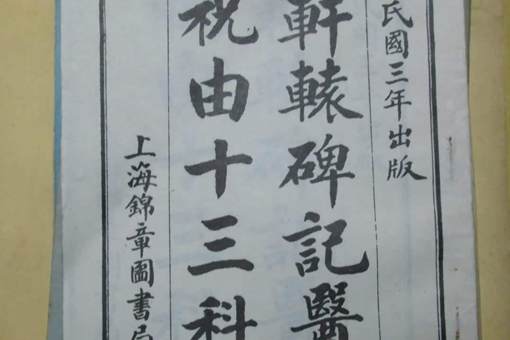 民國三年出版
軒轅碑記醫
祝由十三科
上海錦章圖書局